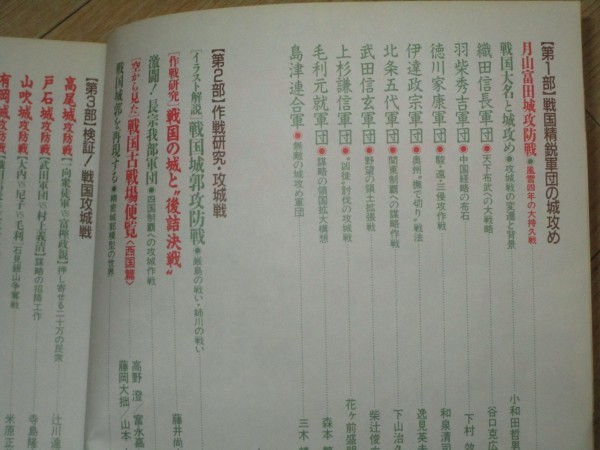 【第1部】戦国精鋭軍団の城攻め
月山富田城攻防戦●風雪四年の大持久戦
戦国大名と城攻め●攻城戦の変遷と背景 小和田哲男
織田信長軍団●天下布武への大戦略 谷口克広
羽柴秀吉軍団●中国経略の布石 下村
徳川家康軍団●駿・遠・三侵攻作戦 和泉清司
伊達政宗軍団●奥州“撫で切り”戦法 逸見英夫
北条五代軍団●関東制覇への謀略作戦 下山治久
武田信玄軍団●野望の領土拡張戦 柴辻俊
上杉謙信軍団●“凶徒”討伐の攻城戦 花ヶ前盛明
毛利元就軍団●謀略の領国拡大構想 森本
島津連合軍●無敵の城攻め軍団 三木
【第2部】作戦研究・攻城戦
[イラスト解説]戦国城郭攻防戦●厳島の戦い・姉川の戦い
[作戦研究]戦国の城と“後詰決戦” 藤井尚
激闘!長宗我部軍団●四国制覇への攻城作戦
[空から見た]戦国古戦場便覧〈西国篇〉 高野 澄/富永嘉
戦国城郭を再現する●精密城郭模型の世界 藤岡大拙/山本
【第3部】検証!戦国攻城戦
高尾城攻防戦[一向衆徒vs富樫政親]押し寄せる二十万の民衆 辻川達
戸石城攻防戦[武田軍団vs村上義清]謀略の招降工作 寺島隆
山吹城攻防戦[大内vs尼子vs毛利]石見銀山争奪戦 米原正
有岡城攻防戦